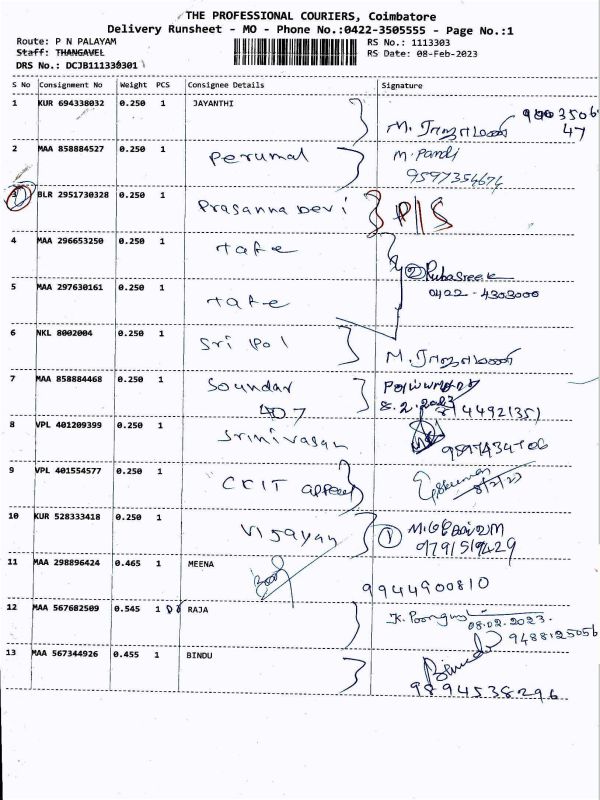 THE PROFESSIONAL COURIERS, Coimbatore
Delivery Runsheet - MO - Phone No.:0422-3505555 - Page No.:1
Route: P N PALAYAM
RS No.: 1113303
Staff: THANGAVEL
RS Date: 08-Feb-2023
DRS No.: DCJB111330301
S No Consignment No Weight PCS Consignee Details Signature
1 KUR 694338032 0.250 1 JAYANTHI
M. 47
2 MAA 858884527 0.250 1 Perumal M. Pandi
9597354674
3 BLR 2951730328 0.250 1 Prasanna Devi P/S
4 MAA 296653250 0.250 1 tafe
② RubaSree
0422-4303000
5 MAA 297630161 0.250 1 tafe
6 NKL 8002004 0.250 1 Sri Pol
M.
7 MAA 858884468 0.250 1 Soundar
407 8.2.2023 44921351
8 VPL 401209399 0.250 1 Srinivasan
9 VPL 401554577 0.250 1 CRIT
8/2/23
10 KUR 528333418 0.250 1 Vijayan ①
9791519429
11 MAA 298896424 0.465 1 MEENA
9944900810
12 MAA 567682509 0.545 1 RAJA
08.02.2023.
9488125056
13 MAA 567344926 0.455 1 BINDU
9894538296